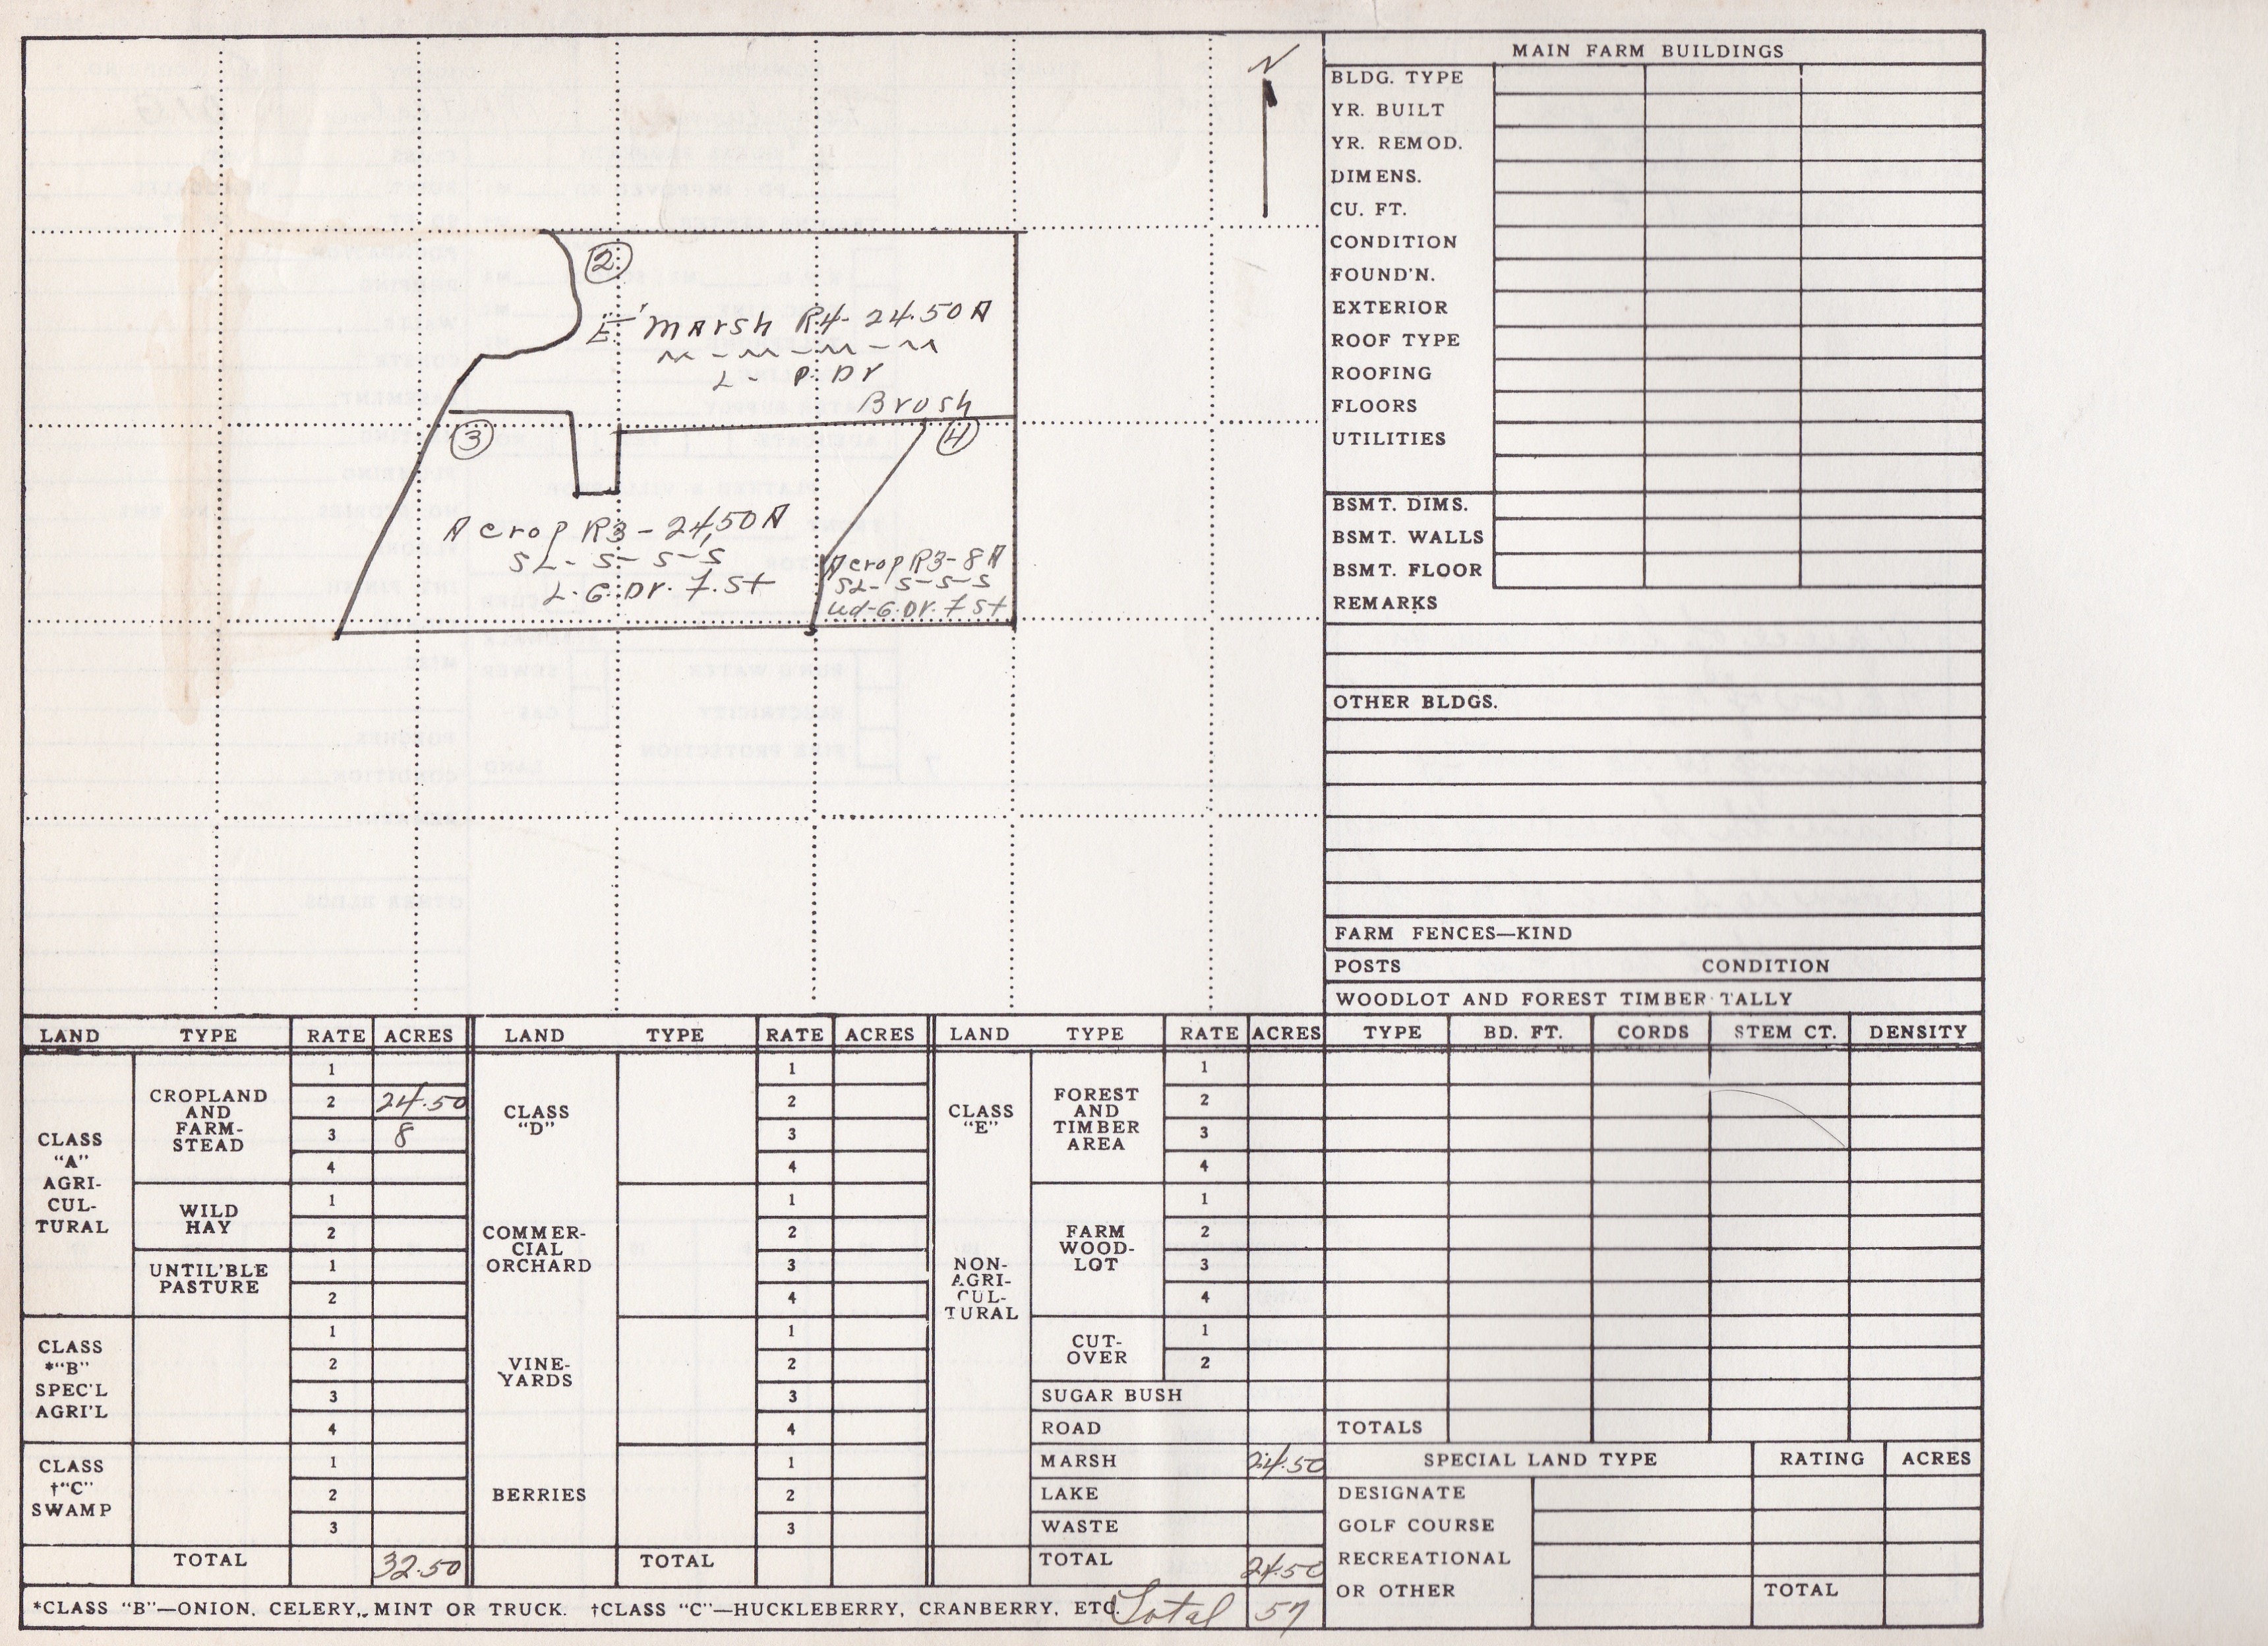 N
②
E' Marsh R4- 24.50 A
~ - ~ - ~ - ~
L - P. Dr
Brush
③
④
A crop R3 - 24,50 A
SL - S - S - S
L. G. Dr. F. St
A crop R3 - 8 A
SL - S - S - S
Ud-G. Dr. F St
MAIN FARM BUILDINGS
BLDG. TYPE
YR. BUILT
YR. REMOD.
DIMENS.
CU. FT.
CONDITION
FOUND'N.
EXTERIOR
ROOF TYPE
ROOFING
FLOORS
UTILITIES
BSMT. DIMS.
BSMT. WALLS
BSMT. FLOOR
REMARKS
OTHER BLDGS.
FARM FENCES—KIND
POSTS CONDITION
WOODLOT AND FOREST TIMBER TALLY
TYPE BD. FT. CORDS STEM CT. DENSITY
TOTALS
SPECIAL LAND TYPE RATING ACRES
DESIGNATE
GOLF COURSE
RECREATIONAL
OR OTHER TOTAL
LAND TYPE RATE ACRES
CLASS
"A"
AGRI-
CUL-
TURAL
CROPLAND
AND
FARM-
STEAD
1
2 24.50
3 8
4
WILD
HAY
1
2
UNTIL'BLE
PASTURE
1
2
CLASS
*"B"
SPEC'L
AGRI'L
1
2
3
4
CLASS
†"C"
SWAMP
1
2
3
TOTAL 32.50
LAND TYPE RATE ACRES
CLASS
"D"
1
2
3
4
COMMER-
CIAL
ORCHARD
1
2
3
4
VINE-
YARDS
1
2
3
4
BERRIES
1
2
3
TOTAL
LAND TYPE RATE ACRES
CLASS
"E"
NON-
AGRI-
CUL-
TURAL
FOREST
AND
TIMBER
AREA
1
2
3
4
FARM
WOOD-
LOT
1
2
3
4
CUT-
OVER
1
2
SUGAR BUSH
ROAD
MARSH 24.50
LAKE
WASTE
TOTAL 24.50
*CLASS "B"—ONION, CELERY, MINT OR TRUCK. †CLASS "C"—HUCKLEBERRY, CRANBERRY, ETC. Total 57